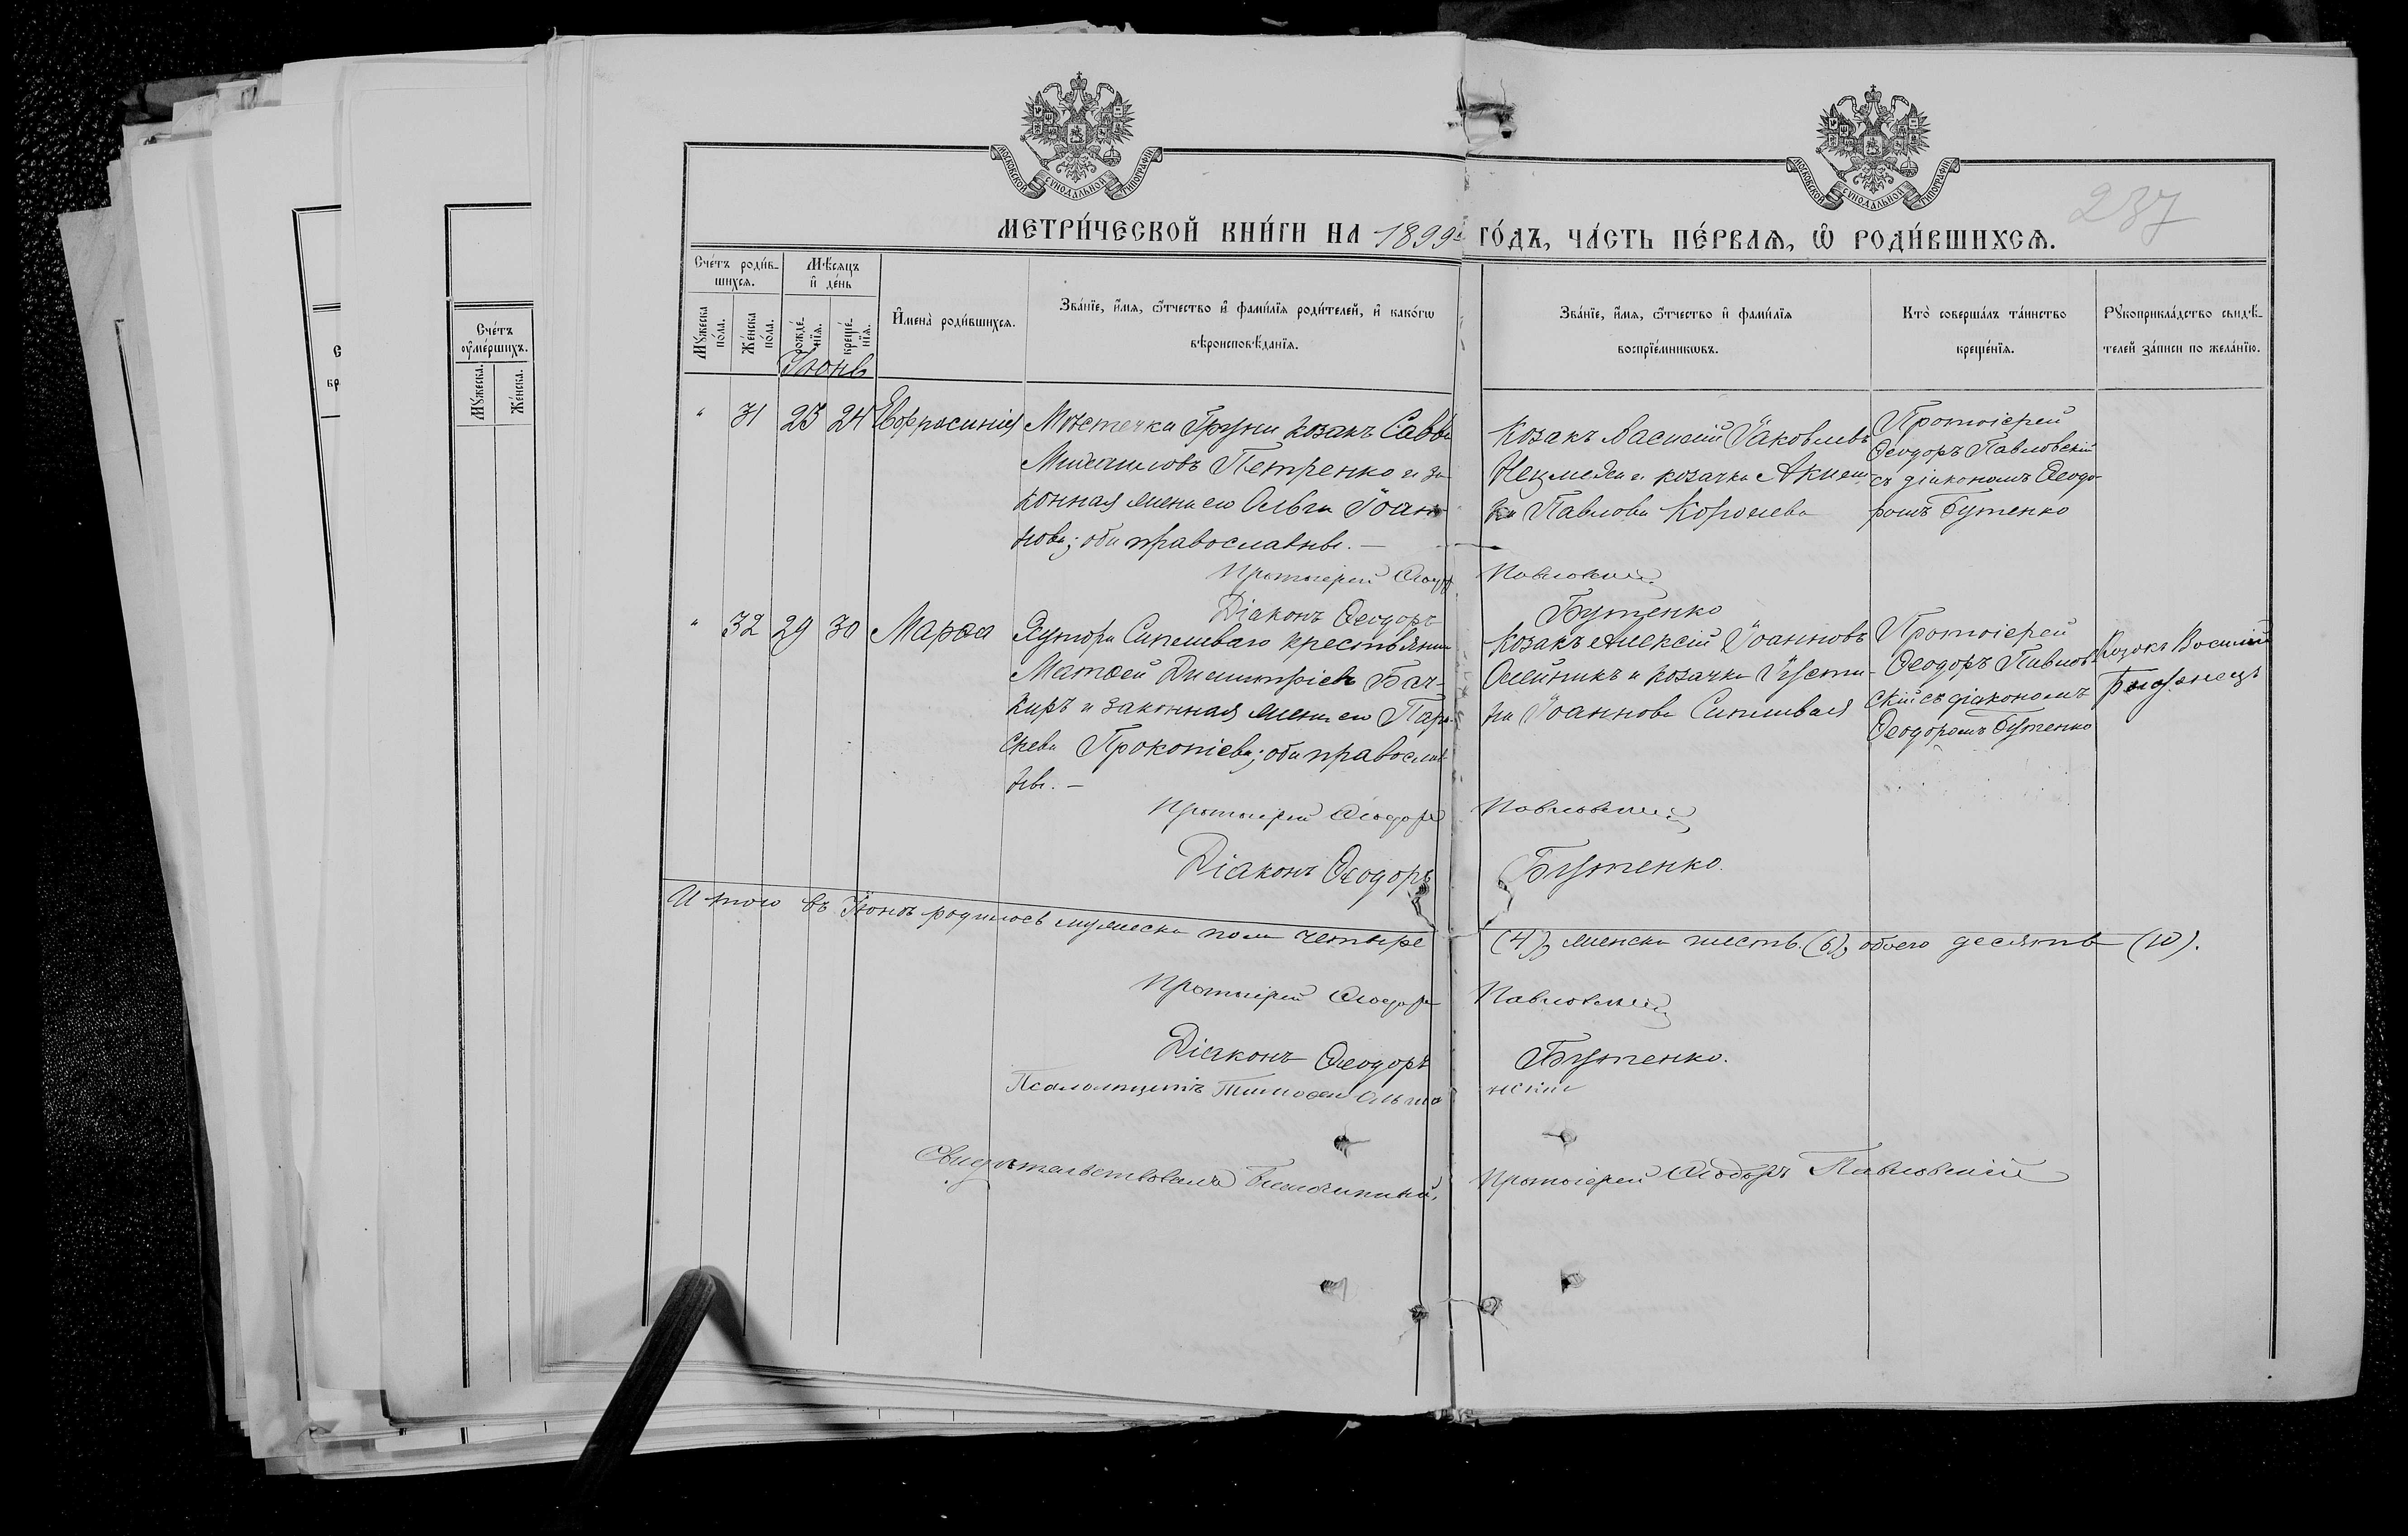 МОСКОВСКОЙ СѴНОДАЛЬНОЙ ТИПОГРАФІИ
МОСКОВСКОЙ СѴНОДАЛЬНОЙ ТИПОГРАФІИ
237
МЕТРИ́ЧЕСКОЙ КНИ́ГИ НА 1899й ГО́ДЪ, ЧА́СТЬ ПЕ́РВАЯ, Ѡ РОДИ́ВШИХСЯ.
Сче́тъ роди́вшихся.
Мꙋ́жеска по́ла.
Же́нска по́ла.
Мѣ́сяцъ и҆ де́нь
рожде́нїя.
креще́нїя.
И҆мена̀ роди́вшихся.
Зва́нїе, и҆́мя, ѻ҆́тчество и҆ фами́лїя роди́телей, и҆ како́гѡ
вѣроисповѣ́данїя.
Зва́нїе, и҆́мя, ѻ҆́тчество и҆ фами́лїя
воспрїе́мникѡвъ.
Кто̀ соверша́лъ та́инство
креще́нїя.
Рꙋкоприкла́дство свидѣ́-
телей за́писи по жела́нїю.
Сче́тъ
ᲂу҆ме́ршихъ.
Мꙋ́жеска.
Же́нска.
Іюнь
" 31 23 24 Евфросинія
Мѣстечка Груни козакъ Савва
Михаиловъ Петренко и за-
конная жена его Ольга Іоан-
нова; оба православные. —
Козакъ Василій Іаковлевъ
и козачка
Павлова Королева
Протоіерей
Ѳеодоръ Павловскій
съ діакономъ Ѳеодо-
ромъ Бутенко
Протоіерей Ѳеодоръ Павловскій.
Діаконъ Ѳеодоръ Бутенко
" 32 29 30 Марѳа
Хутора крестьянинъ
Матѳей Димитріевъ
и законная жена его Пара-
скева Прокопіева; оба православ-
ные. —
Козакъ Алексій Іоанновъ
Олейникъ и козачка Іусти-
на Іоаннова
Протоіерей
Ѳеодоръ Павлов-
скій съ діакономъ
Ѳеодоромъ Бутенко
Козакъ Василій
Протоіерей Ѳеодоръ Павловскій
Діаконъ Ѳеодоръ Бутенко.
Итого въ Іюнѣ родилось мужеска пола четыре (4), женска шесть (6), обоего десять (10).
Протоіерей Ѳеодоръ Павловскій
Діаконъ Ѳеодоръ Бутенко.
Псаломщикъ Тимоѳей
Свидѣтельствовалъ Благочинный, Протоіерей Ѳеодоръ Павловскій